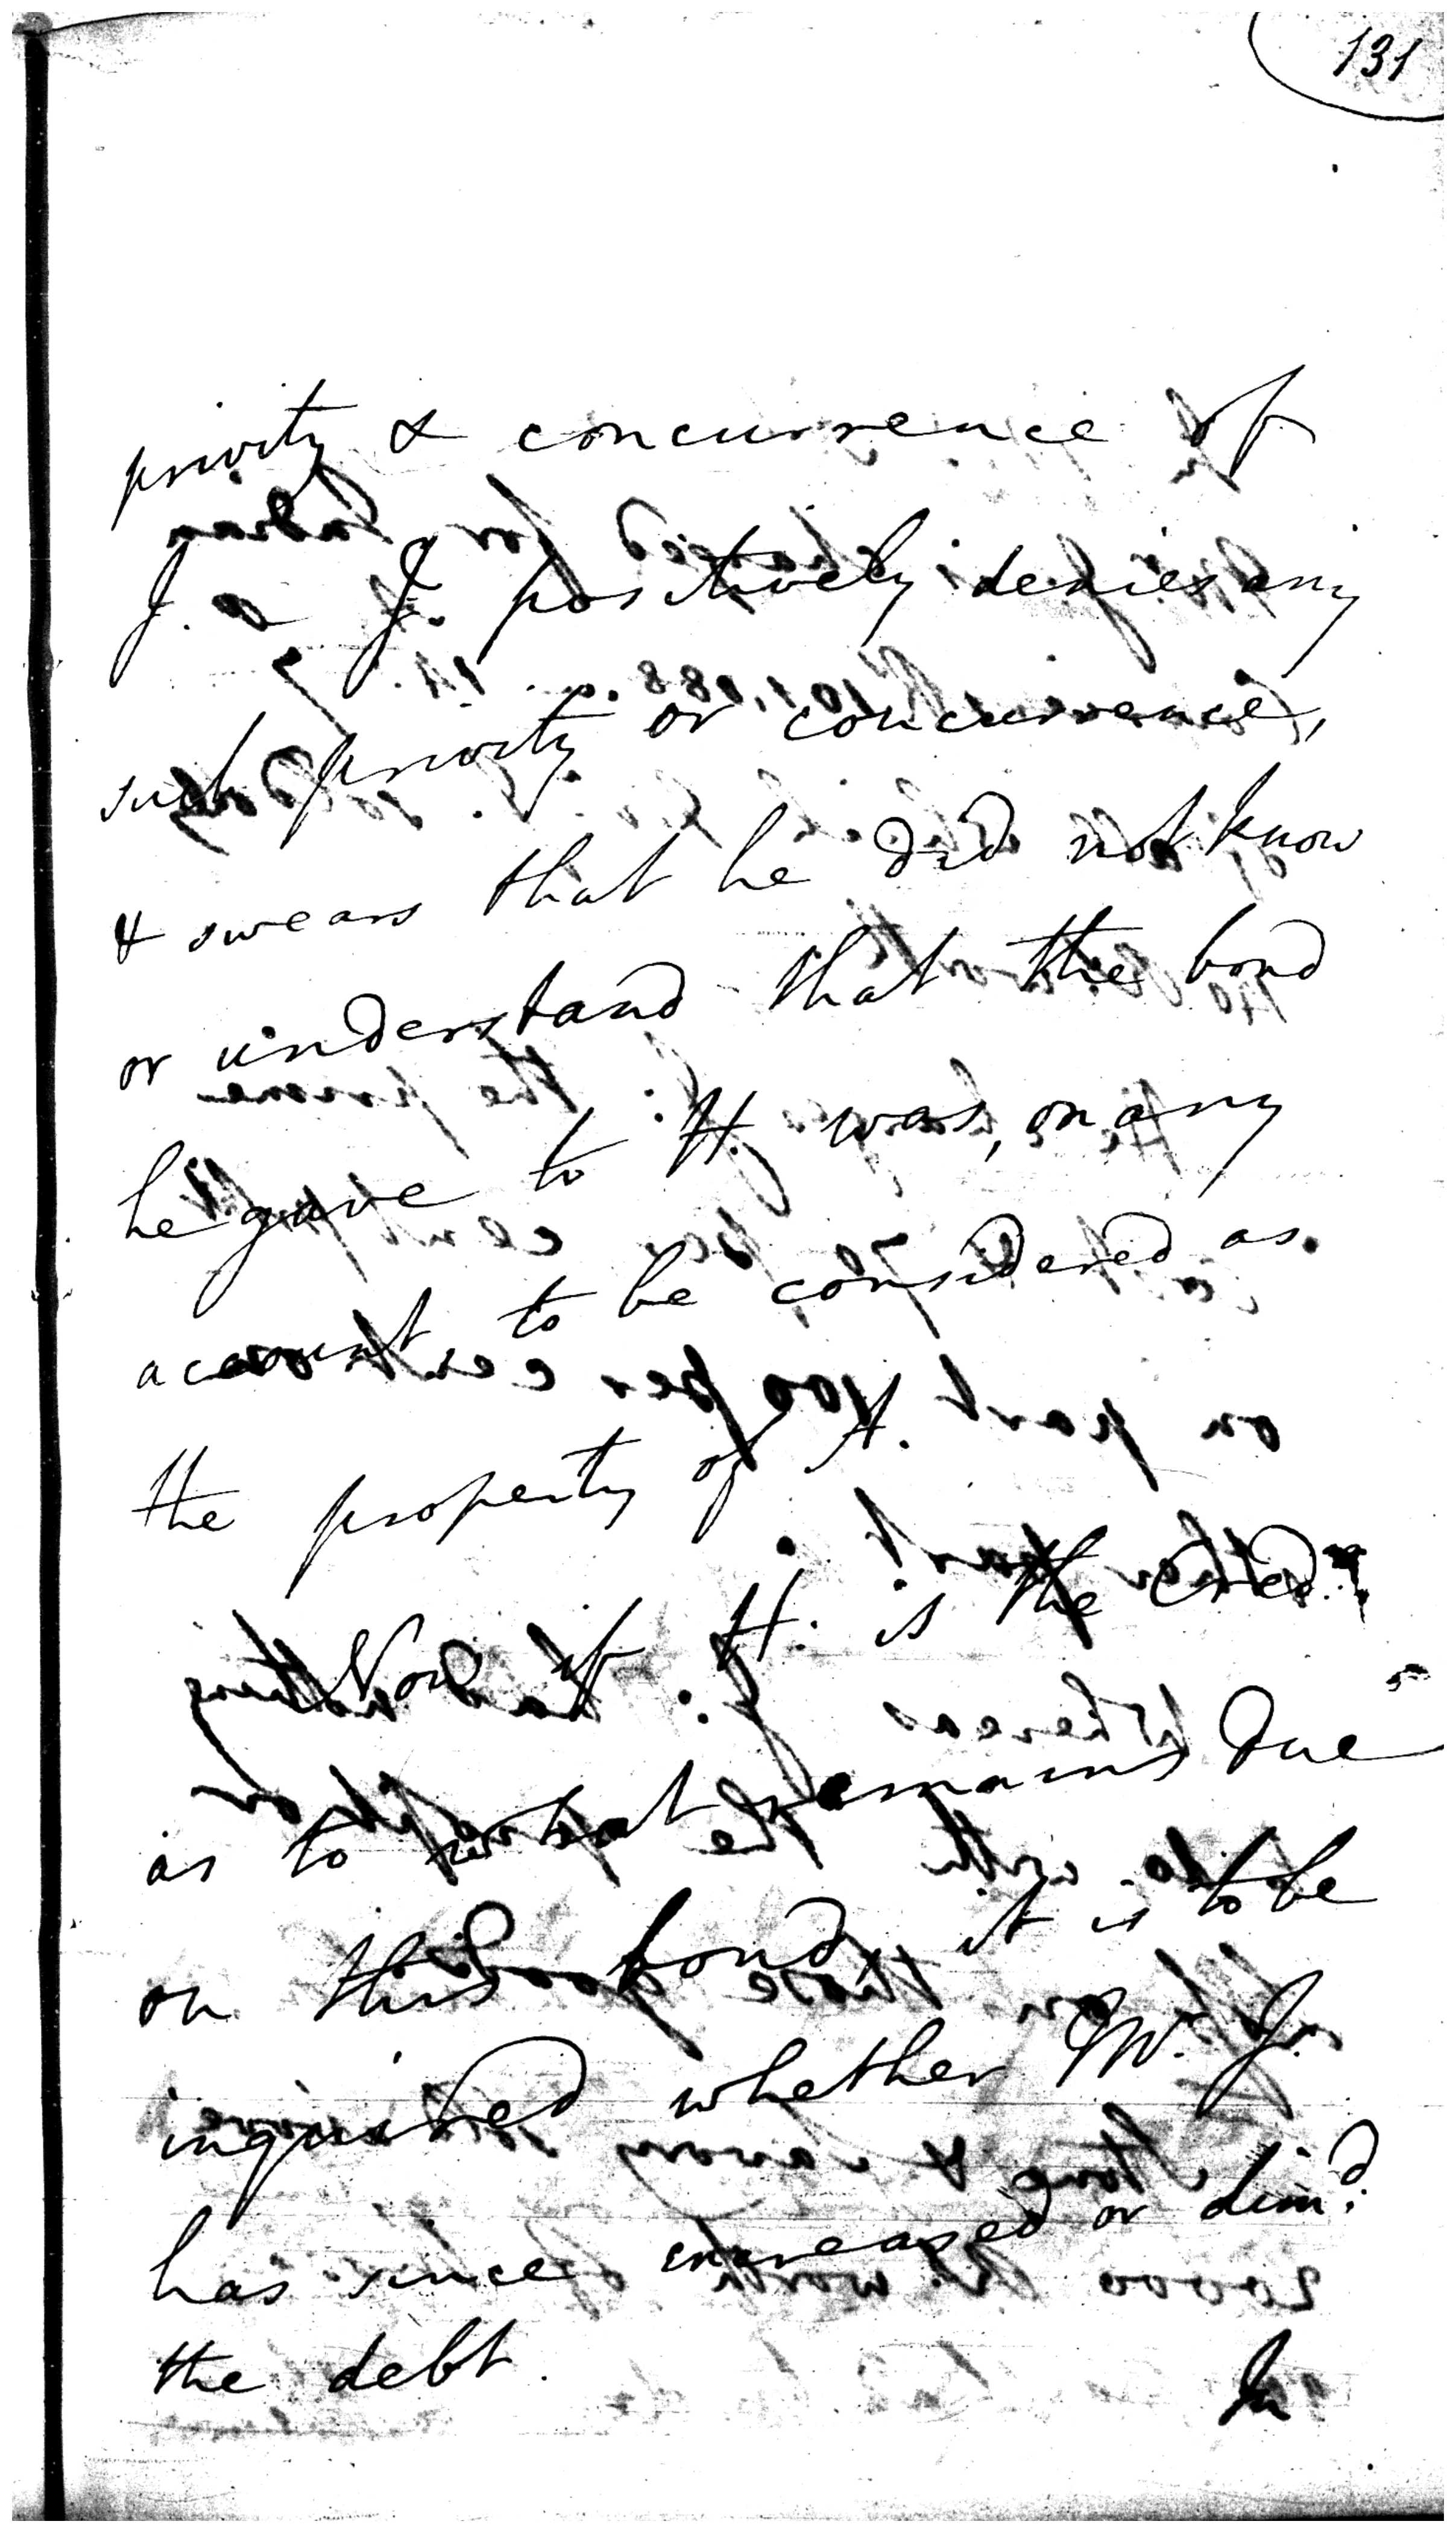 131
privity & concurrence of
J. — J. positively denies any
such privity or concurrence,
& swears that he did not know
or understand that the bond
he gave to H. was, on any
account to be considered as
the property of A.
Now if H. is the cred.r
as to what remains due
on this bond, it is to be
inquired whether W. J.
has since increased or dim.d
the debt.
In